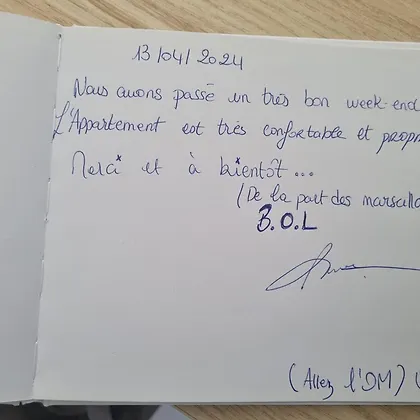 13/04/2024
Nous avons passé un très bon week-end
L'Appartement est très confortable et propr
Merci et à bientôt...
(De la part des marseilla
B.O.L
(Allez l'OM)